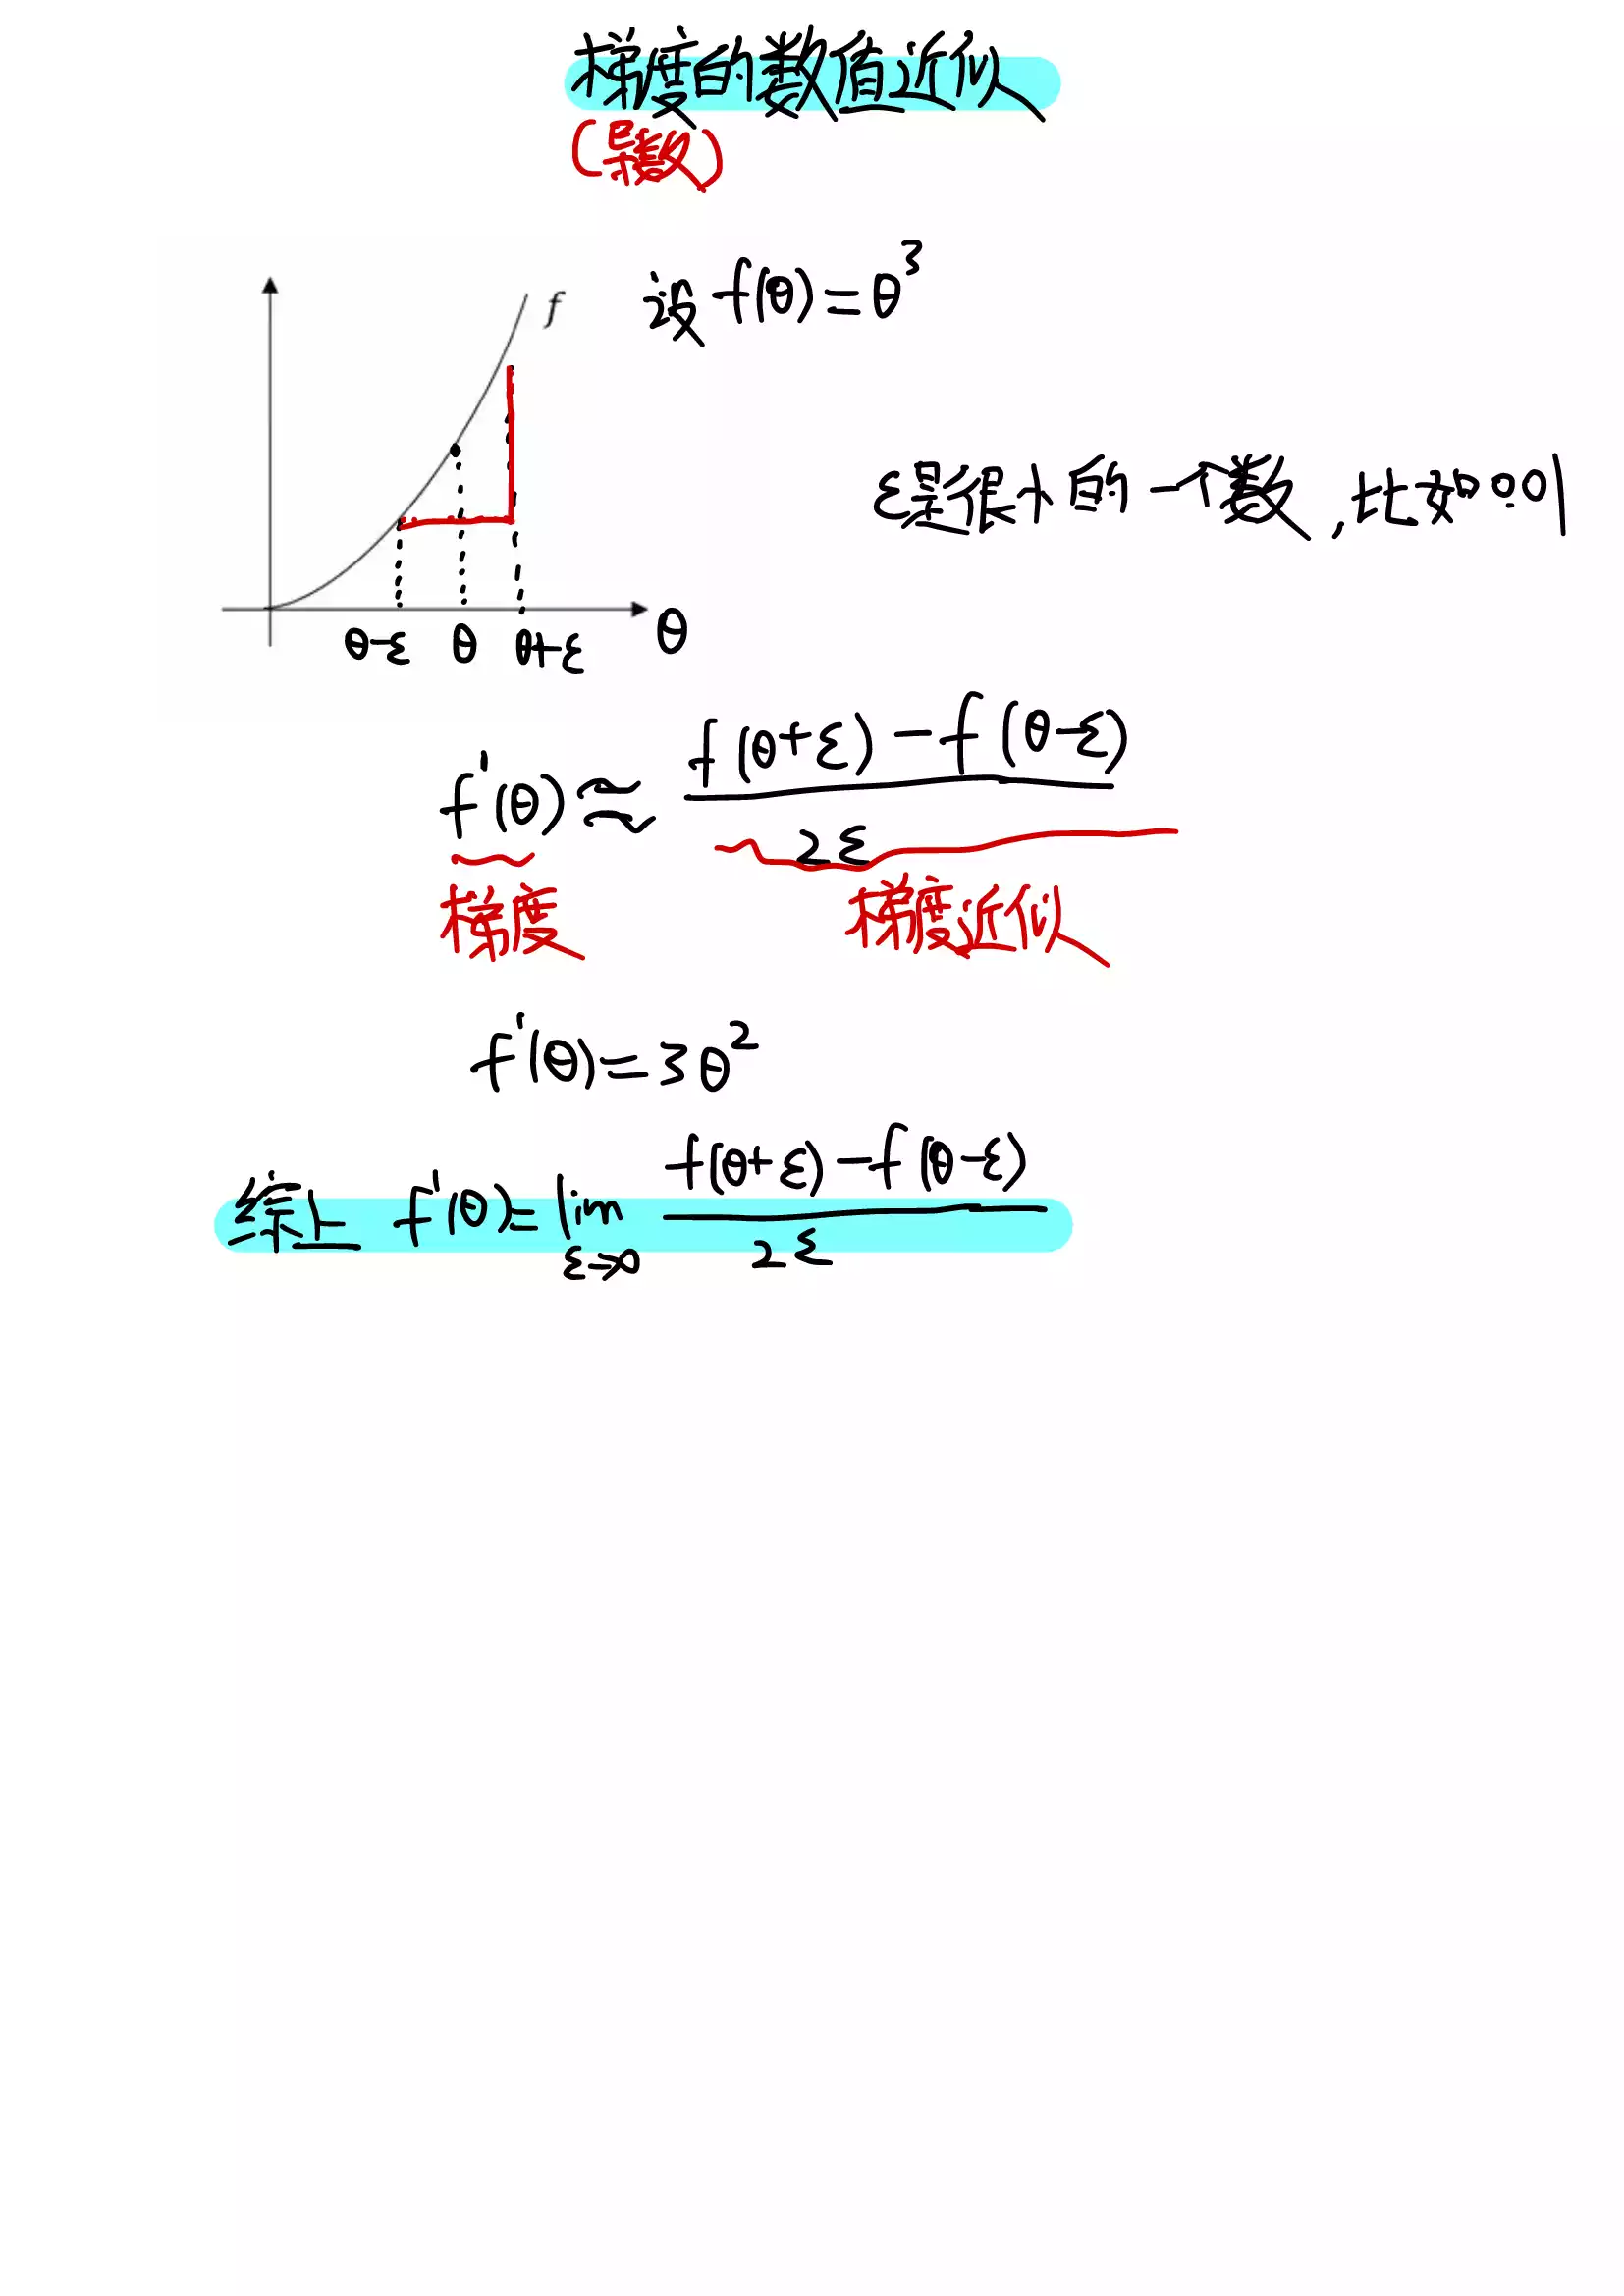 梯度的数值近似
(导数)
设 f(θ)=θ³
f
ε是很小的一个数,比如0.01
θ-ε θ θ+ε θ
f'(θ)≈ f(θ+ε)-f(θ-ε) / 2ε
梯度 梯度近似
f'(θ)=3θ²
综上 f'(θ)=lim ε→0 f(θ+ε)-f(θ-ε) / 2ε